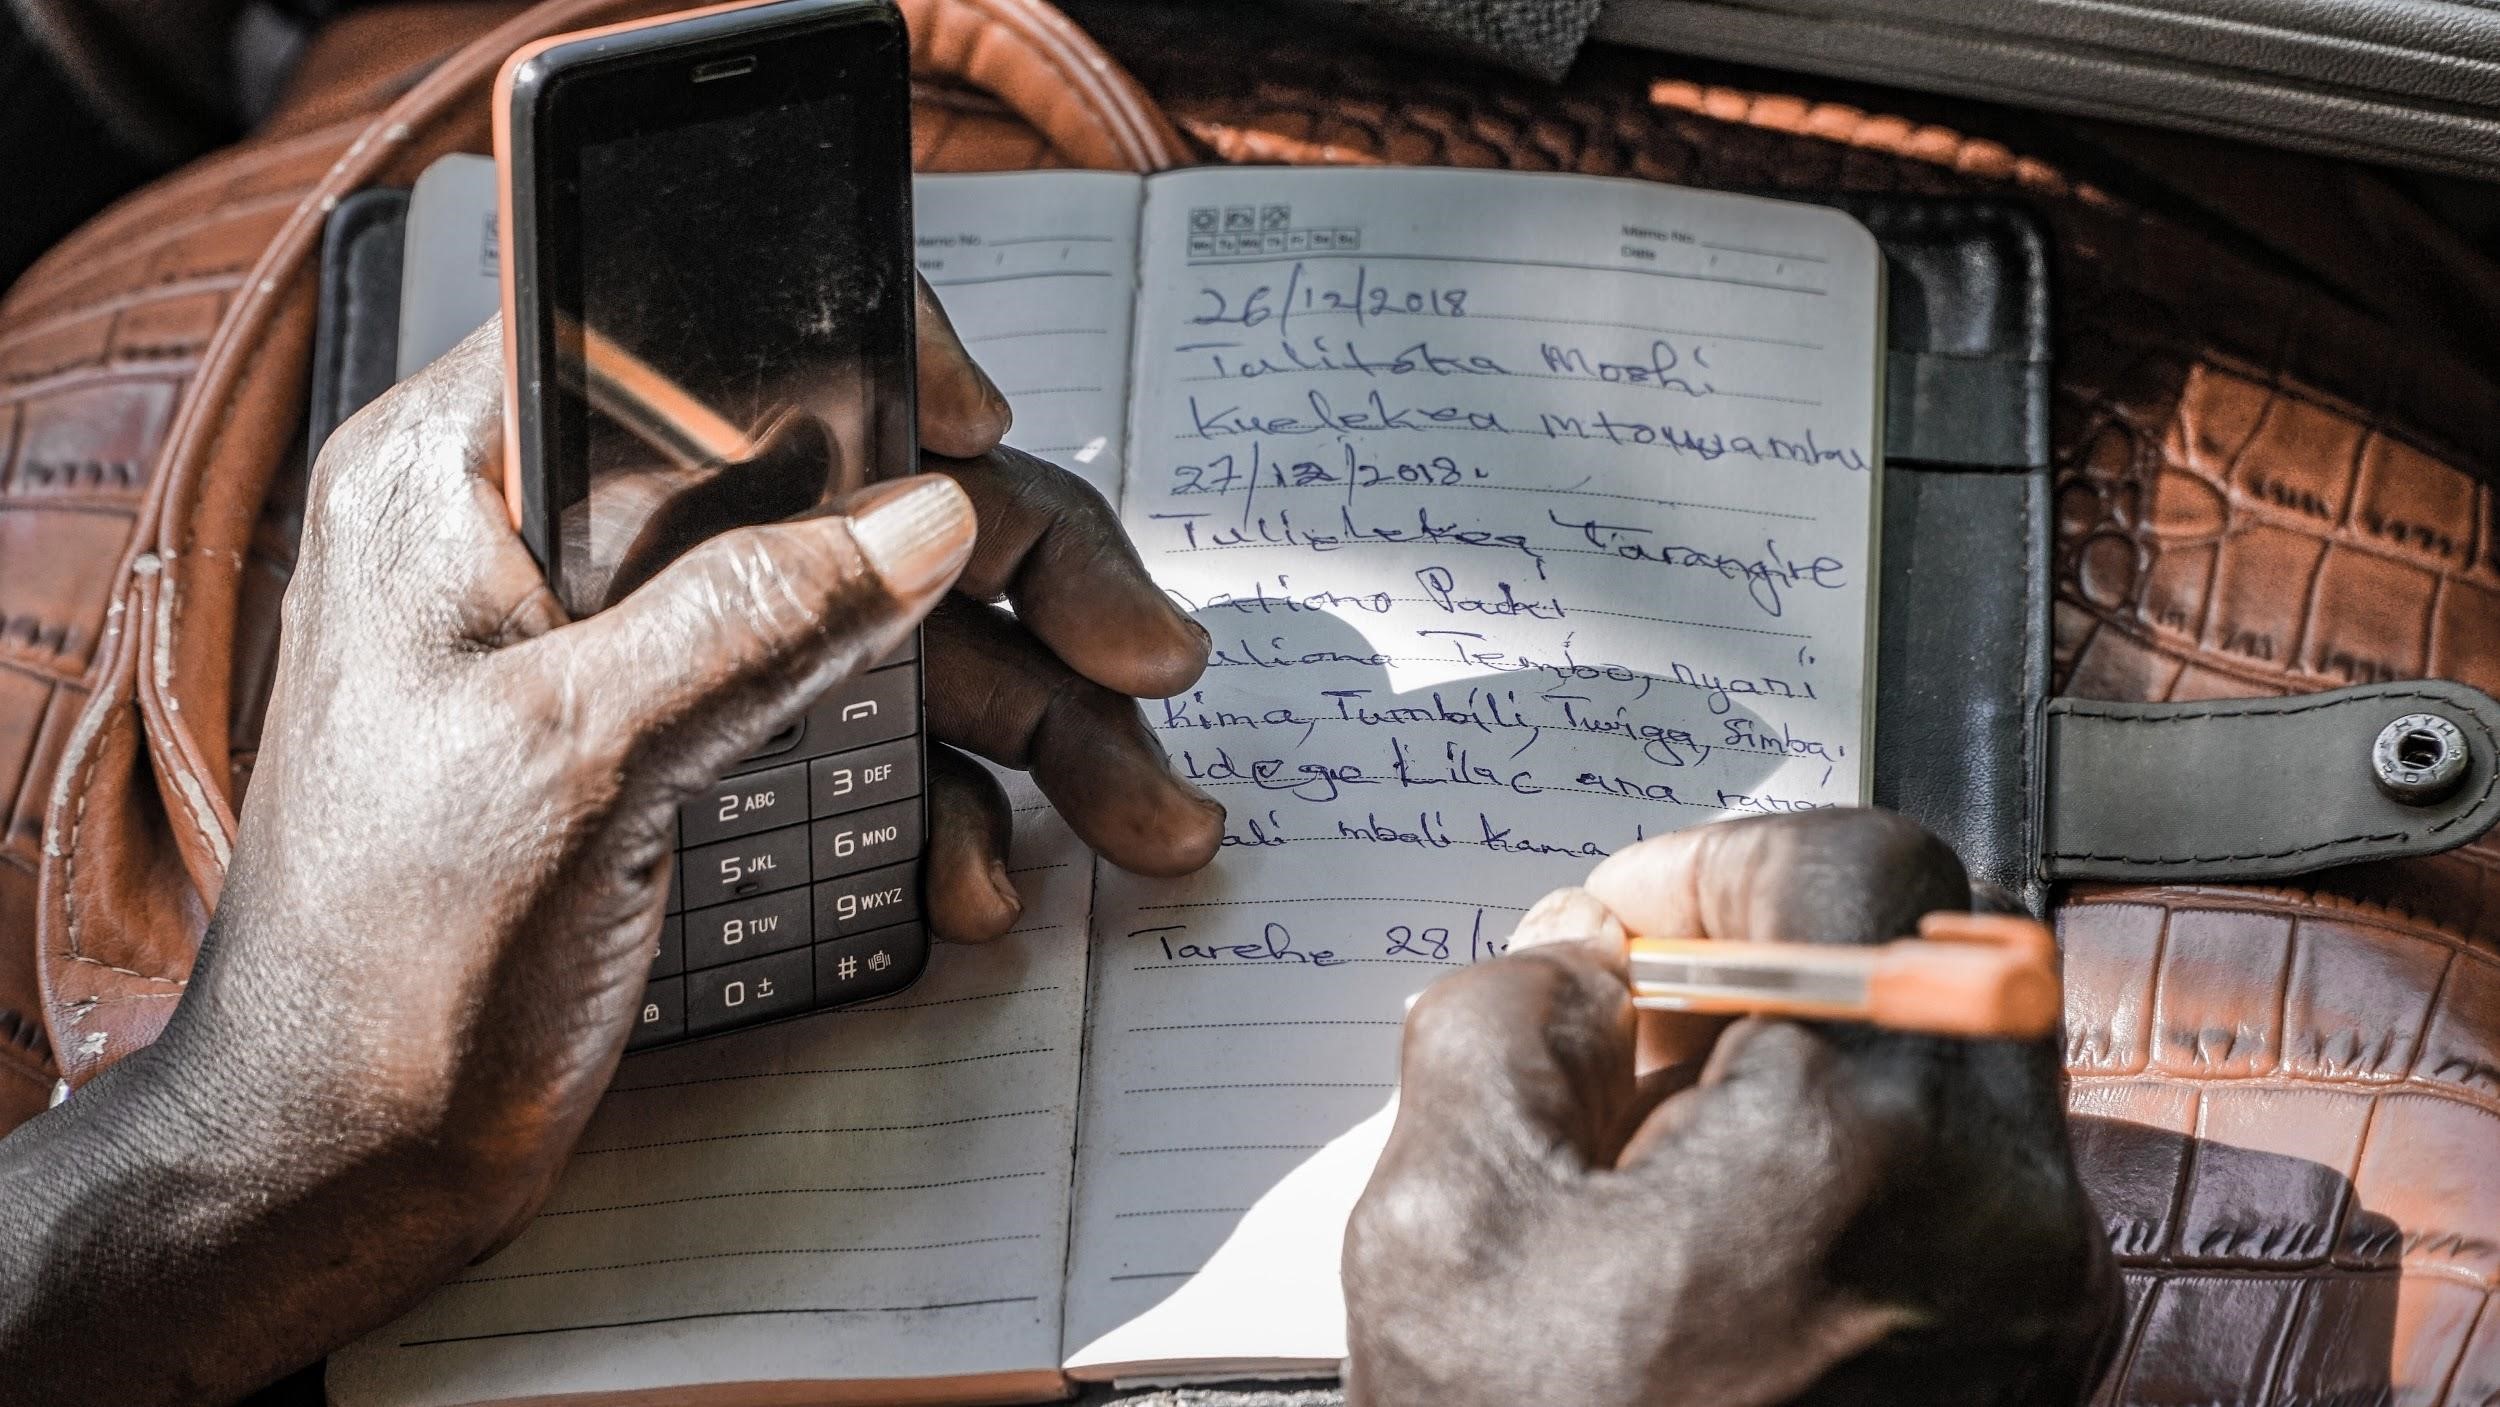 Memo No.
Date / /
Mo Tu We Th Fr Sa Su
Memo No.
Date / /
26/12/2018
Tulitoka Moshi
Kuelekea mtowyambu
27/12/2018.
Tulielekea Tarangire
Packi
Tembo, nyani
Kima, Tumbili, Twiga, Simba,
ana
mbali kama
Tarehe 28/1
2 ABC
3 DEF
5 JKL
6 MNO
8 TUV
9 WXYZ
0
#